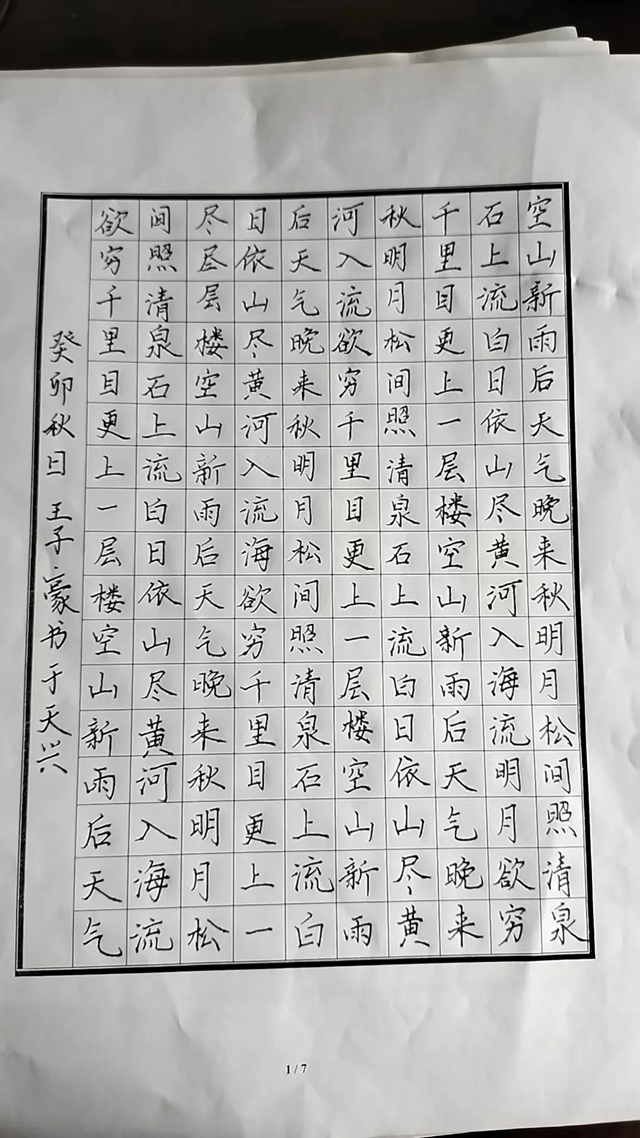 空山新雨后天气晚来秋明月松间照清泉
石上流白日依山尽黄河入海流明月欲穷
千里目更上一层楼空山新雨后天气晚来
秋明月松间照清泉石上流白日依山尽黄
河入流欲穷千里目更上一层楼空山新雨
后天气晚来秋明月松间照清泉石上流白
日依山尽黄河入流海欲穷千里目更上一
尽层楼空山新雨后天气晚来秋明月松
间照清泉石上流白日依山尽黄河入海流
欲穷千里目更上一层楼空山新雨后天气
癸卯秋日 王子豪书于天兴
1 / 7